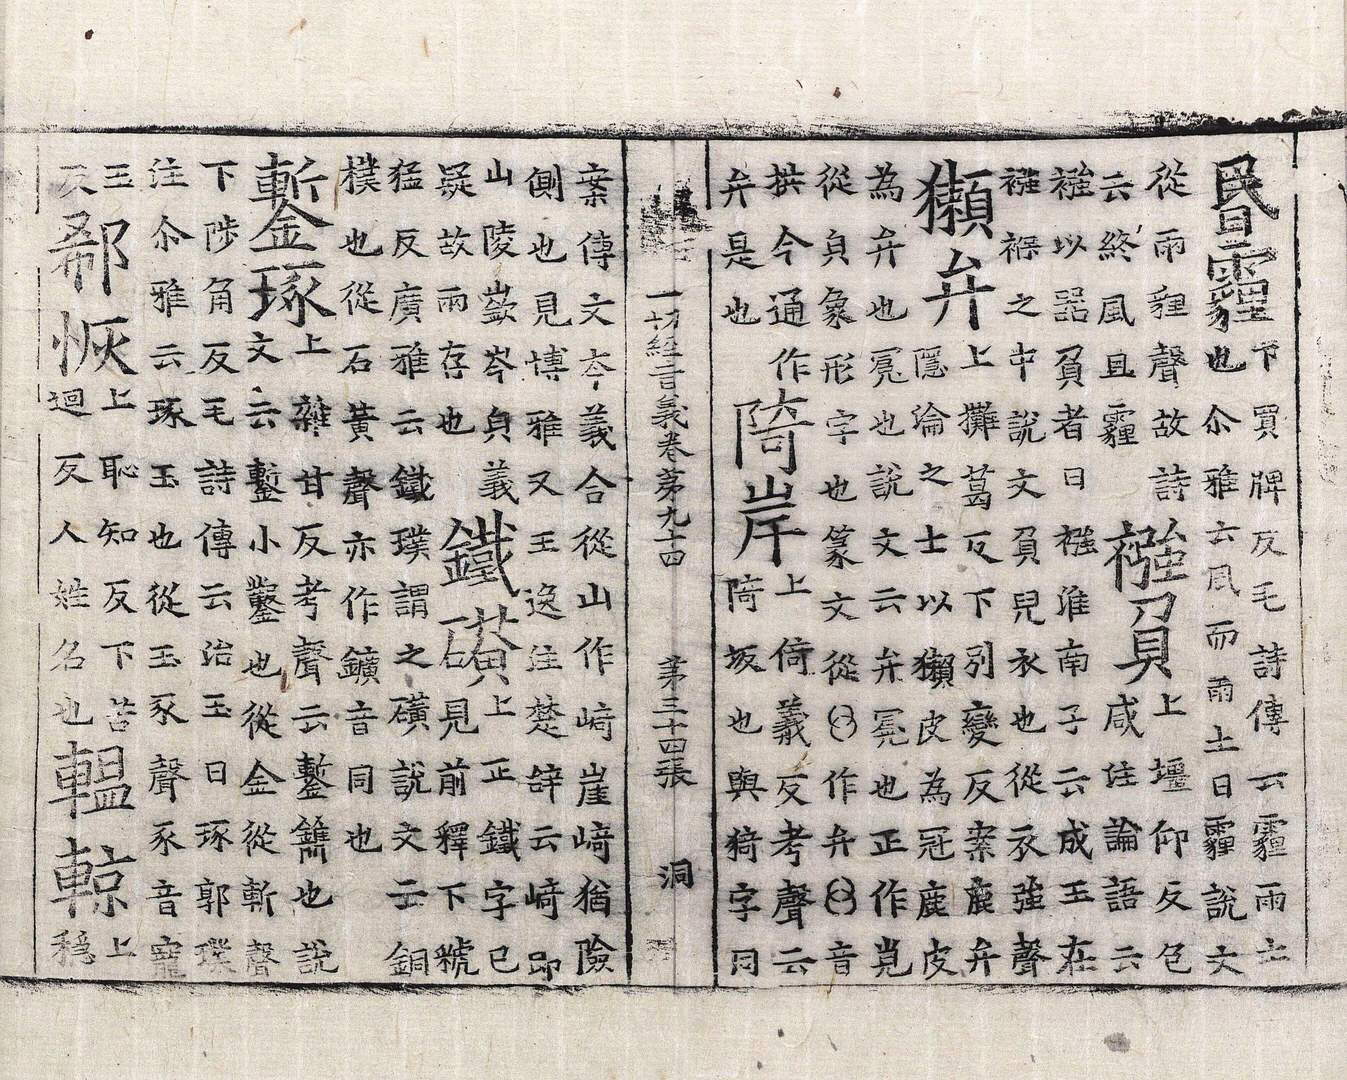 昬霾下買牌反毛詩傳云霾雨土
也尒雅云風而雨土曰霾說文
從雨貍聲故詩
云終風且霾
襁負上壃仰反包咸注論語云
襁以器負者曰襁淮南子云成王在
襁褓之中說文負兒衣也從衣強聲
獺弁上攤葛反下別變反案鹿弁
隱淪之士以獺皮為冠鹿皮
為弁也冕也說文云弁冕也正作覍
從皃象形字也篆文從𠬞作弁𠬞音
拱今通作
弁是也
陭岸上倚義反考聲云
陭坂也與猗字同
案傳文夲義合從山作﨑崖﨑猶險
側也見博雅又王逸注楚辝云﨑即
山陵嶔岑皃義
疑故兩存也
鐵礦上正鐵字已
見前釋下虢
猛反廣雅云鐵璞謂之礦說文云銅
樸也從石黃聲亦作鑛音同也
鏨琢上雜甘反考聲云鏨鐫也說
文云鏨小鑿也從金從斬聲
下陟角反毛詩傳云治玉曰琢郭璞
注尒雅云琢玉也從玉豖聲豖音寵
玉
反
郗恢上恥知反下苦
迴反人姓名也
轀輬上
穩
一切經音義卷第九十四 第三十四張 洞